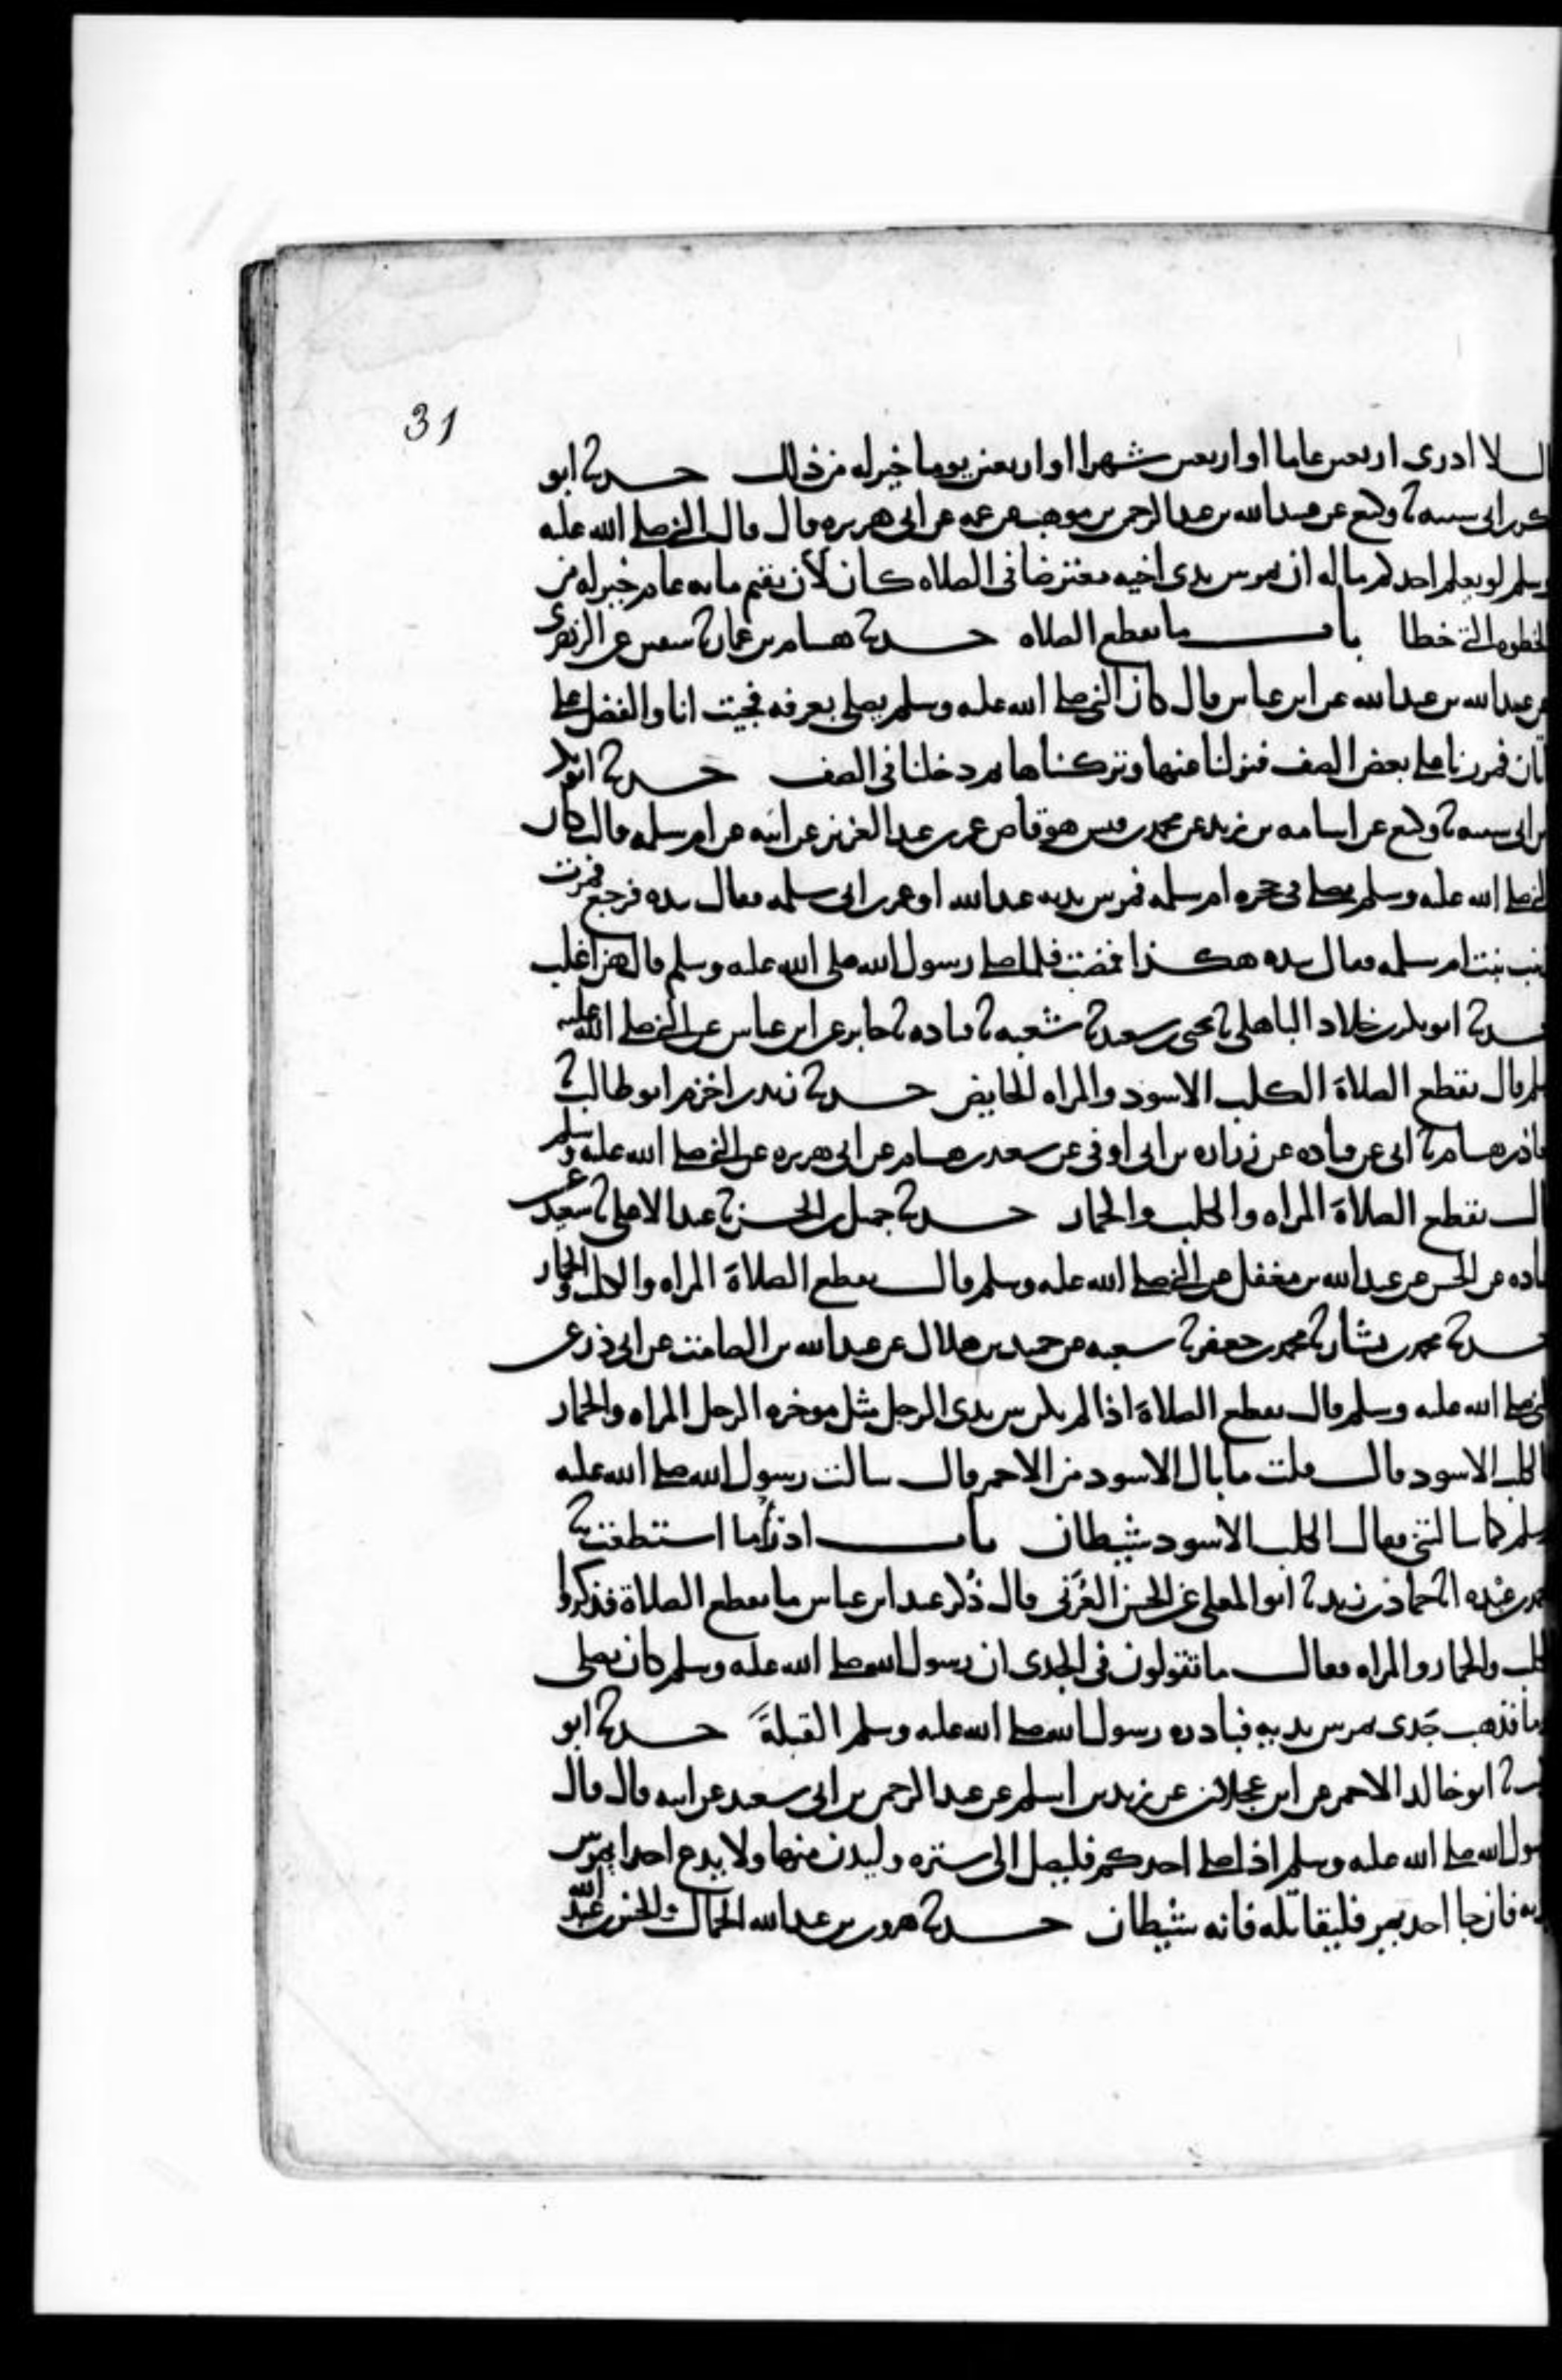 31
لا ادرى اربعين عاما او اربعين شهرا او اربعين يوما خير له من ذلك حدثنا ابو
بكر بن ابى شيبه ثنا وكيع عن عبيد الله بن عبد الرحمن بن موهب عن عمه عن ابى هريره قال قال النبى صلى الله عليه
وسلم لو يعلم احدكم ما له ان يمر بين يدى اخيه معترضا فى الصلاه كان لان يقيم مايه عام خير له من
الخطوه التى خطا باب ما يقطع الصلاه حدثنا هشام بن عمار ثنا سفين عن الزهرى
عن عبيد الله بن عبد الله عن ابن عباس قال كان النبى صلى الله عليه وسلم يصلى بعرفه فجيت انا والفضل على
اتان فمررنا على بعض الصف فنزلنا عنها وتركناها ثم دخلنا فى الصف حدثنا ابو بكر
بن ابى شيبه ثنا وكيع عن اسامه بن زيد عن محمد بن قيس هو قاص عمر بن عبد العزيز عن ابيه عن ام سلمه قالت كان
النبى صلى الله عليه وسلم يصلى فى حجره ام سلمه فمر بين يديه عبد الله او عمر بن ابى سلمه فقال بيده فرجع فمرت
زينب بنت ام سلمه فقال بيده هكذا فمضت فلما صلى رسول الله صلى الله عليه وسلم قال هن اغلب
حدثنا ابو بكر بن خلاد الباهلى ثنا يحيى بن سعيد ثنا شعبه ثنا قتاده ثنا جابر عن ابن عباس عن النبى صلى الله عليه
وسلم قال يقطع الصلاة الكلب الاسود والمراه الحايض حدثنا زيد بن اخزم ابو طالب ثنا
معاذ بن هشام ثنا ابى عن قتاده عن زراره بن ابى اوفى عن سعد بن هشام عن ابى هريره عن النبى صلى الله عليه وسلم
قال يقطع الصلاة المراه والكلب والحمار حدثنا جميل بن الحسن ثنا عبد الاعلى ثنا سعيد عن
قتاده عن الحسن عن عبد الله بن مغفل عن النبى صلى الله عليه وسلم قال يقطع الصلاة المراه والكلب والحمار
حدثنا محمد بن بشار ثنا محمد بن جعفر ثنا شعبه عن حميد بن هلال عن عبد الله بن الصامت عن ابى ذر عن
النبى صلى الله عليه وسلم قال يقطع الصلاة اذا لم يكن بين يدى الرجل مثل موخره الرحل المراه والحمار
والكلب الاسود قال قلت ما بال الاسود من الاحمر قال سالت رسول الله صلى الله عليه
وسلم كما سالتنى فقال الكلب الاسود شيطان باب ادرأ ما استطعت ثنا
احمد بن عبده انا حماد بن زيد ثنا ابو المعلى عن الحسن العرنى قال ذكر عند ابن عباس ما يقطع الصلاة فذكروا
الكلب والحمار والمراه فقال ما تقولون فى الجدى ان رسول الله صلى الله عليه وسلم كان يصلى
يوما فذهب جدى يمر بين يديه فبادره رسول الله صلى الله عليه وسلم القبلة حدثنا ابو
كريب ثنا ابو خالد الاحمر عن ابن عجلان عن زيد بن اسلم عن عبد الرحمن بن ابى سعيد عن ابيه قال قال
رسول الله صلى الله عليه وسلم اذا صلى احدكم فليصل الى ستره وليدن منها ولا يدع احدا يمر بين
يديه فان جا احد يمر فليقاتله فانه شيطان حدثنا هرون بن عبد الله الحمال والحسن بن